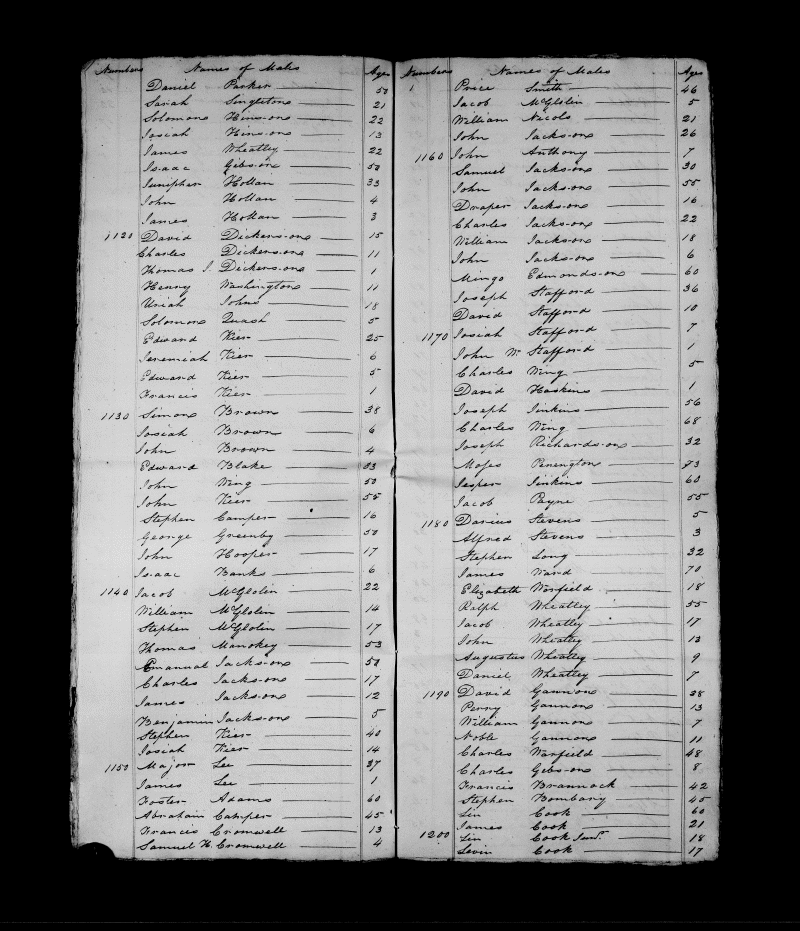 Numbers Names of Males Ages
Daniel Parker 50
Sarah Singletone 21
Solomone Hinsone 22
Josiah Hinsone 13
James Wheatley 22
Isaac Gibsone 50
Junipher Hollan 33
John Hollan 4
James Hollan 3
1120 David Dickensone 15
Charles Dickersone 11
Thomas J. Dickersone 1
Henry Washingtone 11
Uriah Johns 18
Solomone Quash 5
Edward Kier 25
Jeremiah Kier 6
Edward Kier 5
Francis Kier 1
1130 Simone Brown 38
Josiah Brown 6
John Brown 4
Edward Blake 33
John Wing 50
John Kier 55
Stephen Camper 16
George Greenby 50
John Hooper 17
Isaac Banks 6
1140 Jacob McGlolin 22
William McGlolin 14
Stephen McGlolin 17
Thomas Manokey 53
Emanual Jacksone 50
Charles Jacksone 17
James Jacksone 12
Benjamin Jacksone 5
Stephen Kier 40
Josiah Kier 14
1150 Major Lee 37
James Lee 1
Foster Adams 60
Abraham Camper 45
Francis Cromwell 13
Samuel H. Cromwell 4
Numbers Names of Males Ages
Price Smith 46
Jacob McGlolin 5
William Nicols 21
John Jacksone 26
1160 John Anthony 7
Samuel Jacksone 30
John Jacksone 55
Draper Jacksone 16
Charles Jacksone 22
William Jacksone 18
John Jacksone 6
Mingo Edmondsone 60
Joseph Stafford 36
David Stafford 10
1170 Josiah Stafford 7
John W. Stafford 1
Charles Wing 5
David Haskins 1
Joseph Jinkins 56
Charles Wing 68
Joseph Richardsone 32
Moses Penington 73
Jesper Jinkins 60
Jacob Payne 55
1180 Darius Stevens 5
Alfred Stevens 3
Stephen Long 32
James Ward 70
Elizabeth Warfield 18
Ralph Wheatley 55
Jacob Wheatley 17
John Wheatley 13
Augustus Wheatley 9
Daniel Wheatley 7
1190 David Gannone 38
Perry Gannone 13
William Gannone 7
Noble Gannone 11
Charles Warfield 48
Charles Gibsone 8
Francis Brannock 42
Stephen Bombary 45
Lin Cook 60
James Cook 21
1200 Lin Cook Junr. 18
Levin Cook 17